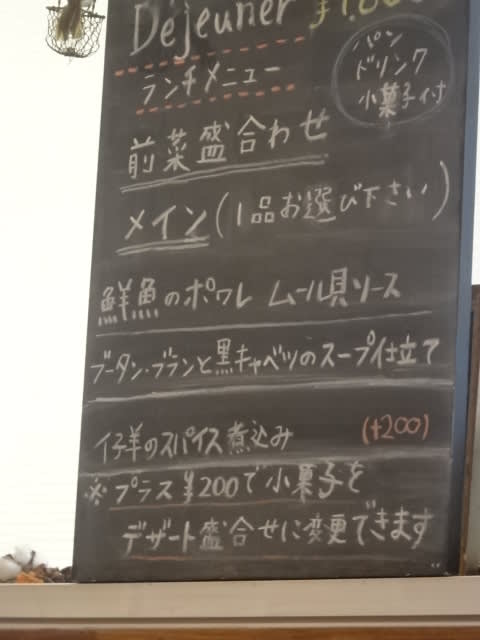 Déjeuner
ランチメニュー
パン
ドリンク
小菓子付
前菜盛合わせ
メイン(1品お選び下さい)
鮮魚のポワレ ムール貝ソース
ブータン・ブランと黒キャベツのスープ仕立て
仔羊のスパイス煮込み (+200)
※プラス¥200で小菓子を
デザート盛合せに変更できます